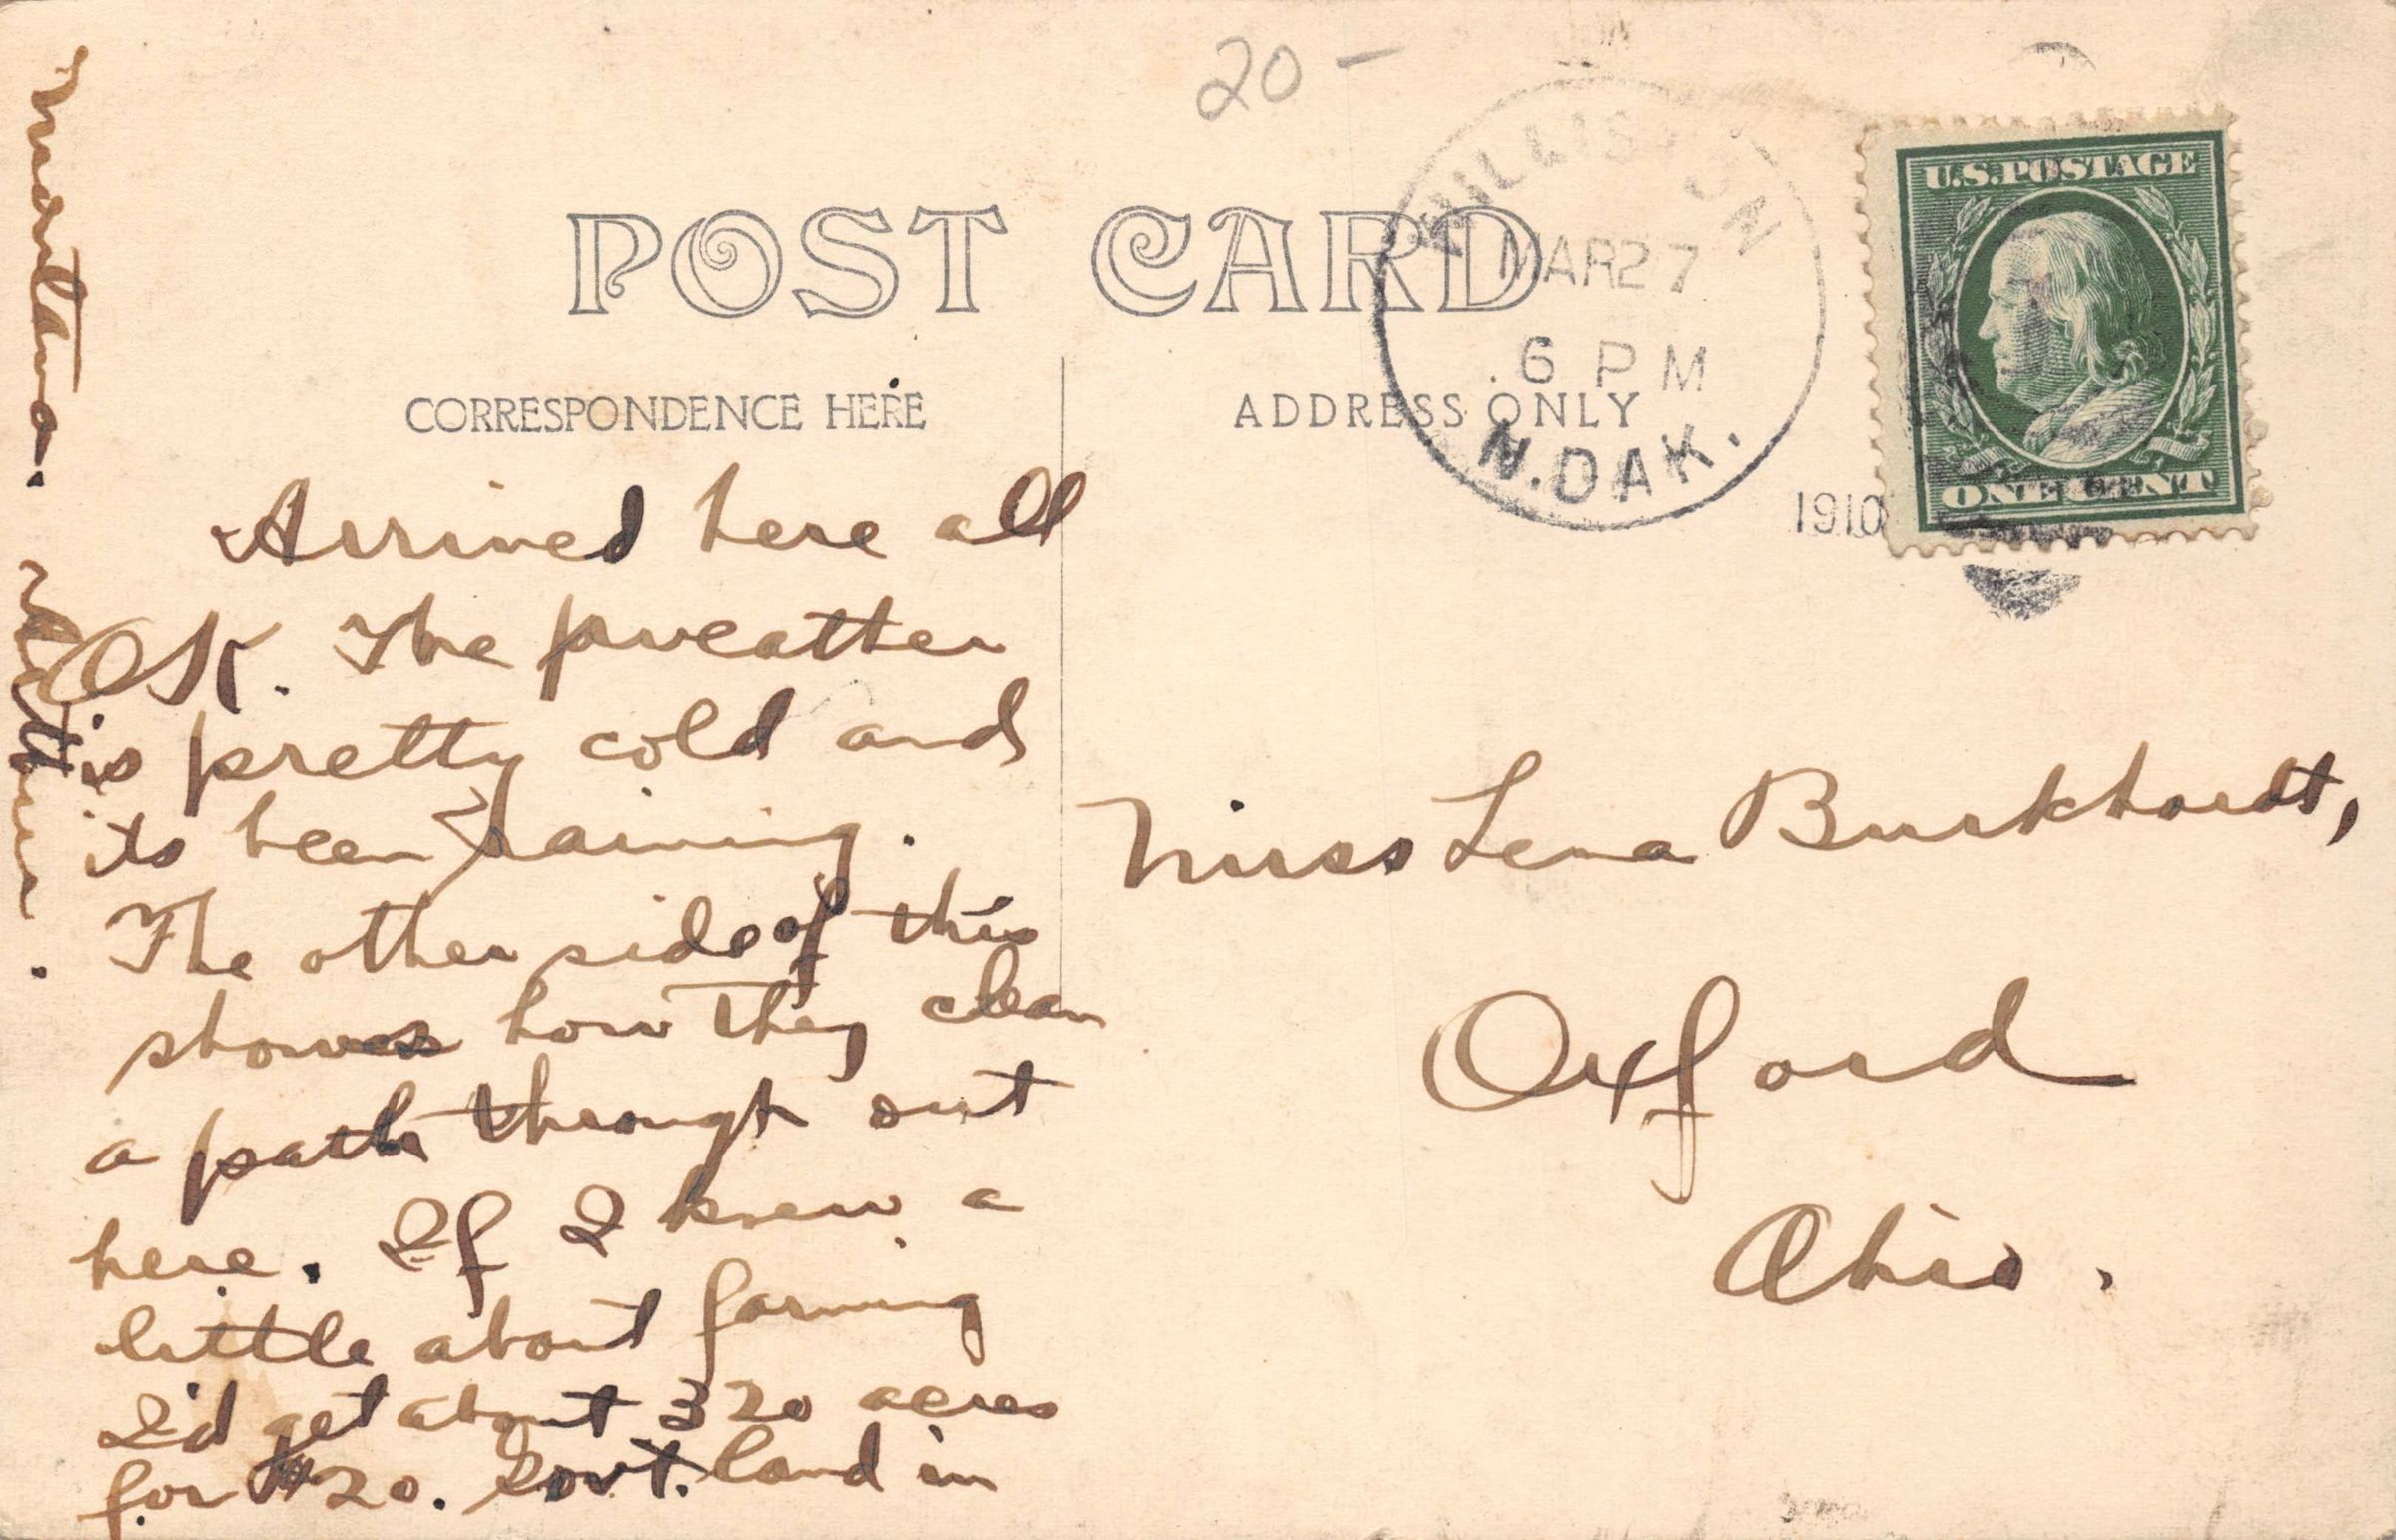 20 -
POST CARD
CORRESPONDENCE HERE
ADDRESS ONLY
WILLISTON
MAR 27
6 PM
N. DAK.
1910
U.S. POSTAGE
ONE CENT
Arrived here all
OK. The weather
is pretty cold and
its been raining.
The other side of this
shows how they clean
a path through out
here. If I knew a
little about farming
I'd get about 320 acres
for $20. Govt. land in
Montana.
Miss Lena Burkhardt,
Oxford
Ohio.